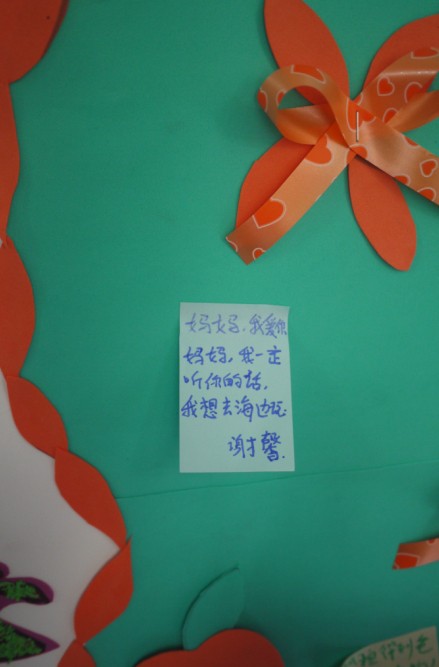 妈妈，我爱你
妈妈，我一定
听你的话，
我想去海边玩
谢才馨.